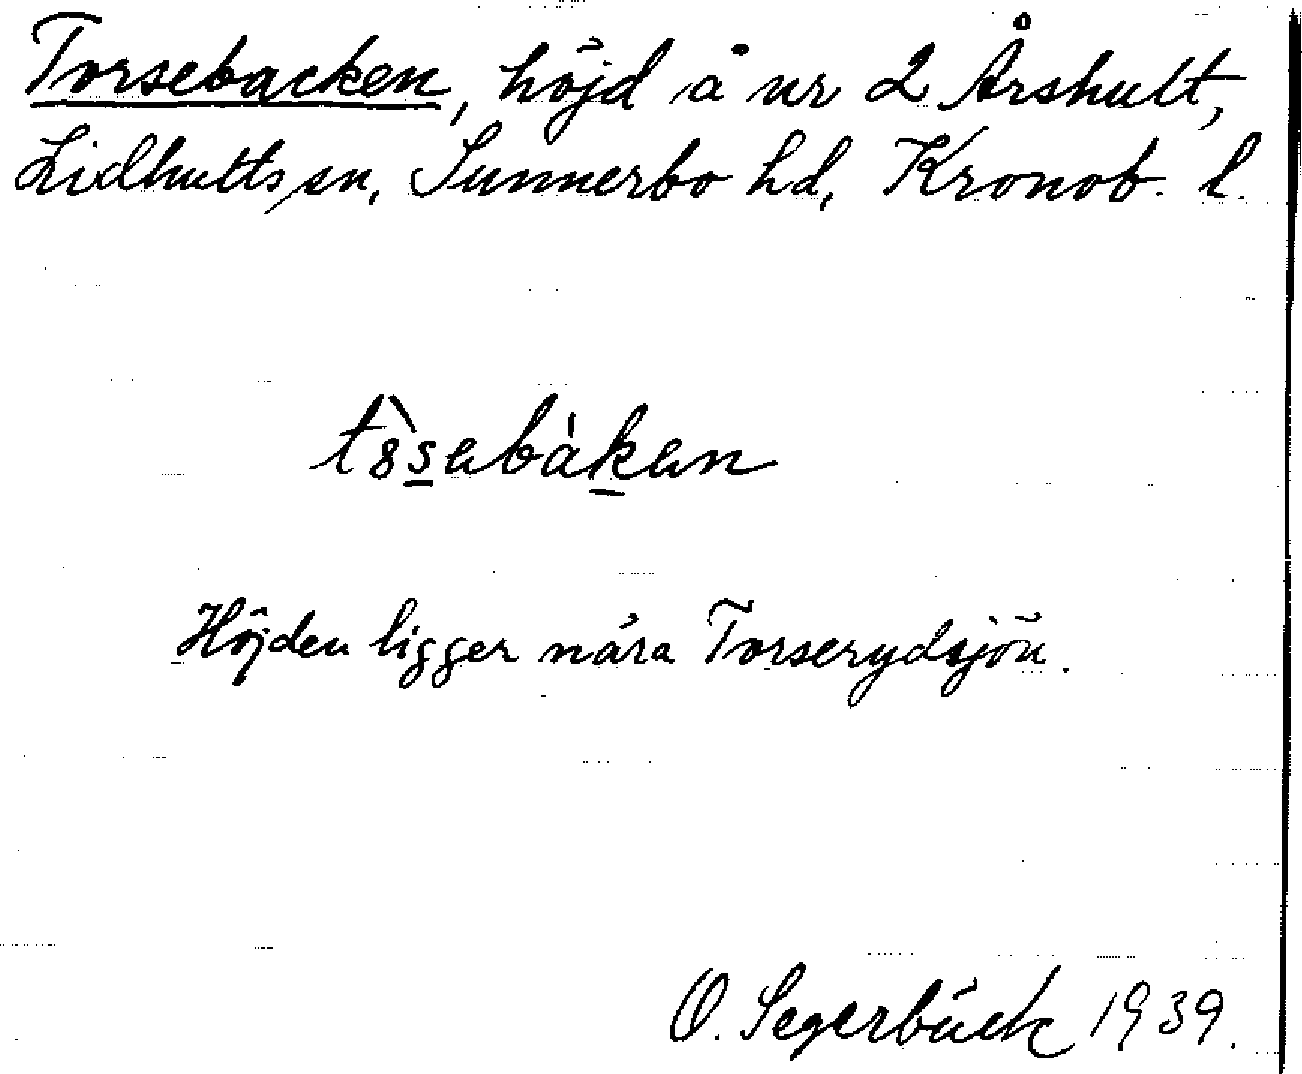 Torsebacken, höjd å nr 2 Årshult,
Lidhults sn, Sunnerbo hd, Kronob. l.
t8̀sabàkan
Höjden ligger nära Torserydsjön.
O. Segerbäck 1939.